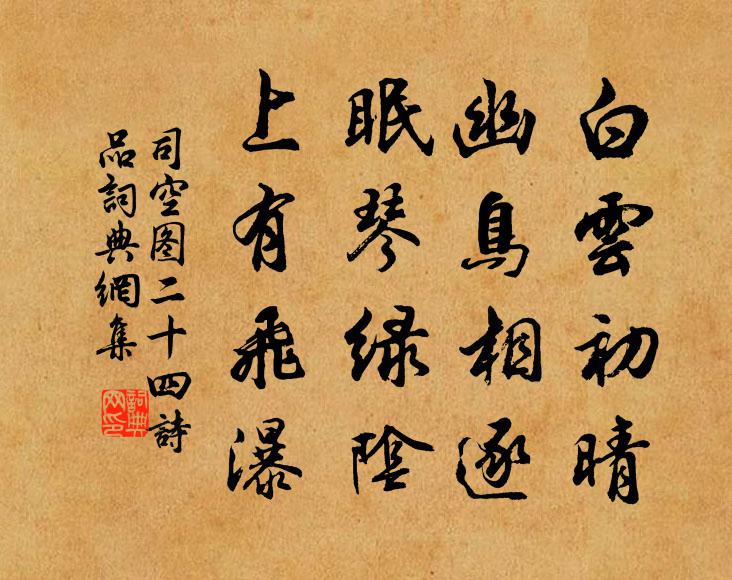 白雲初晴
幽鳥相逐
眠琴绿陰
上有飛瀑
司空图二十四詩
品詞典網集
詞典网印